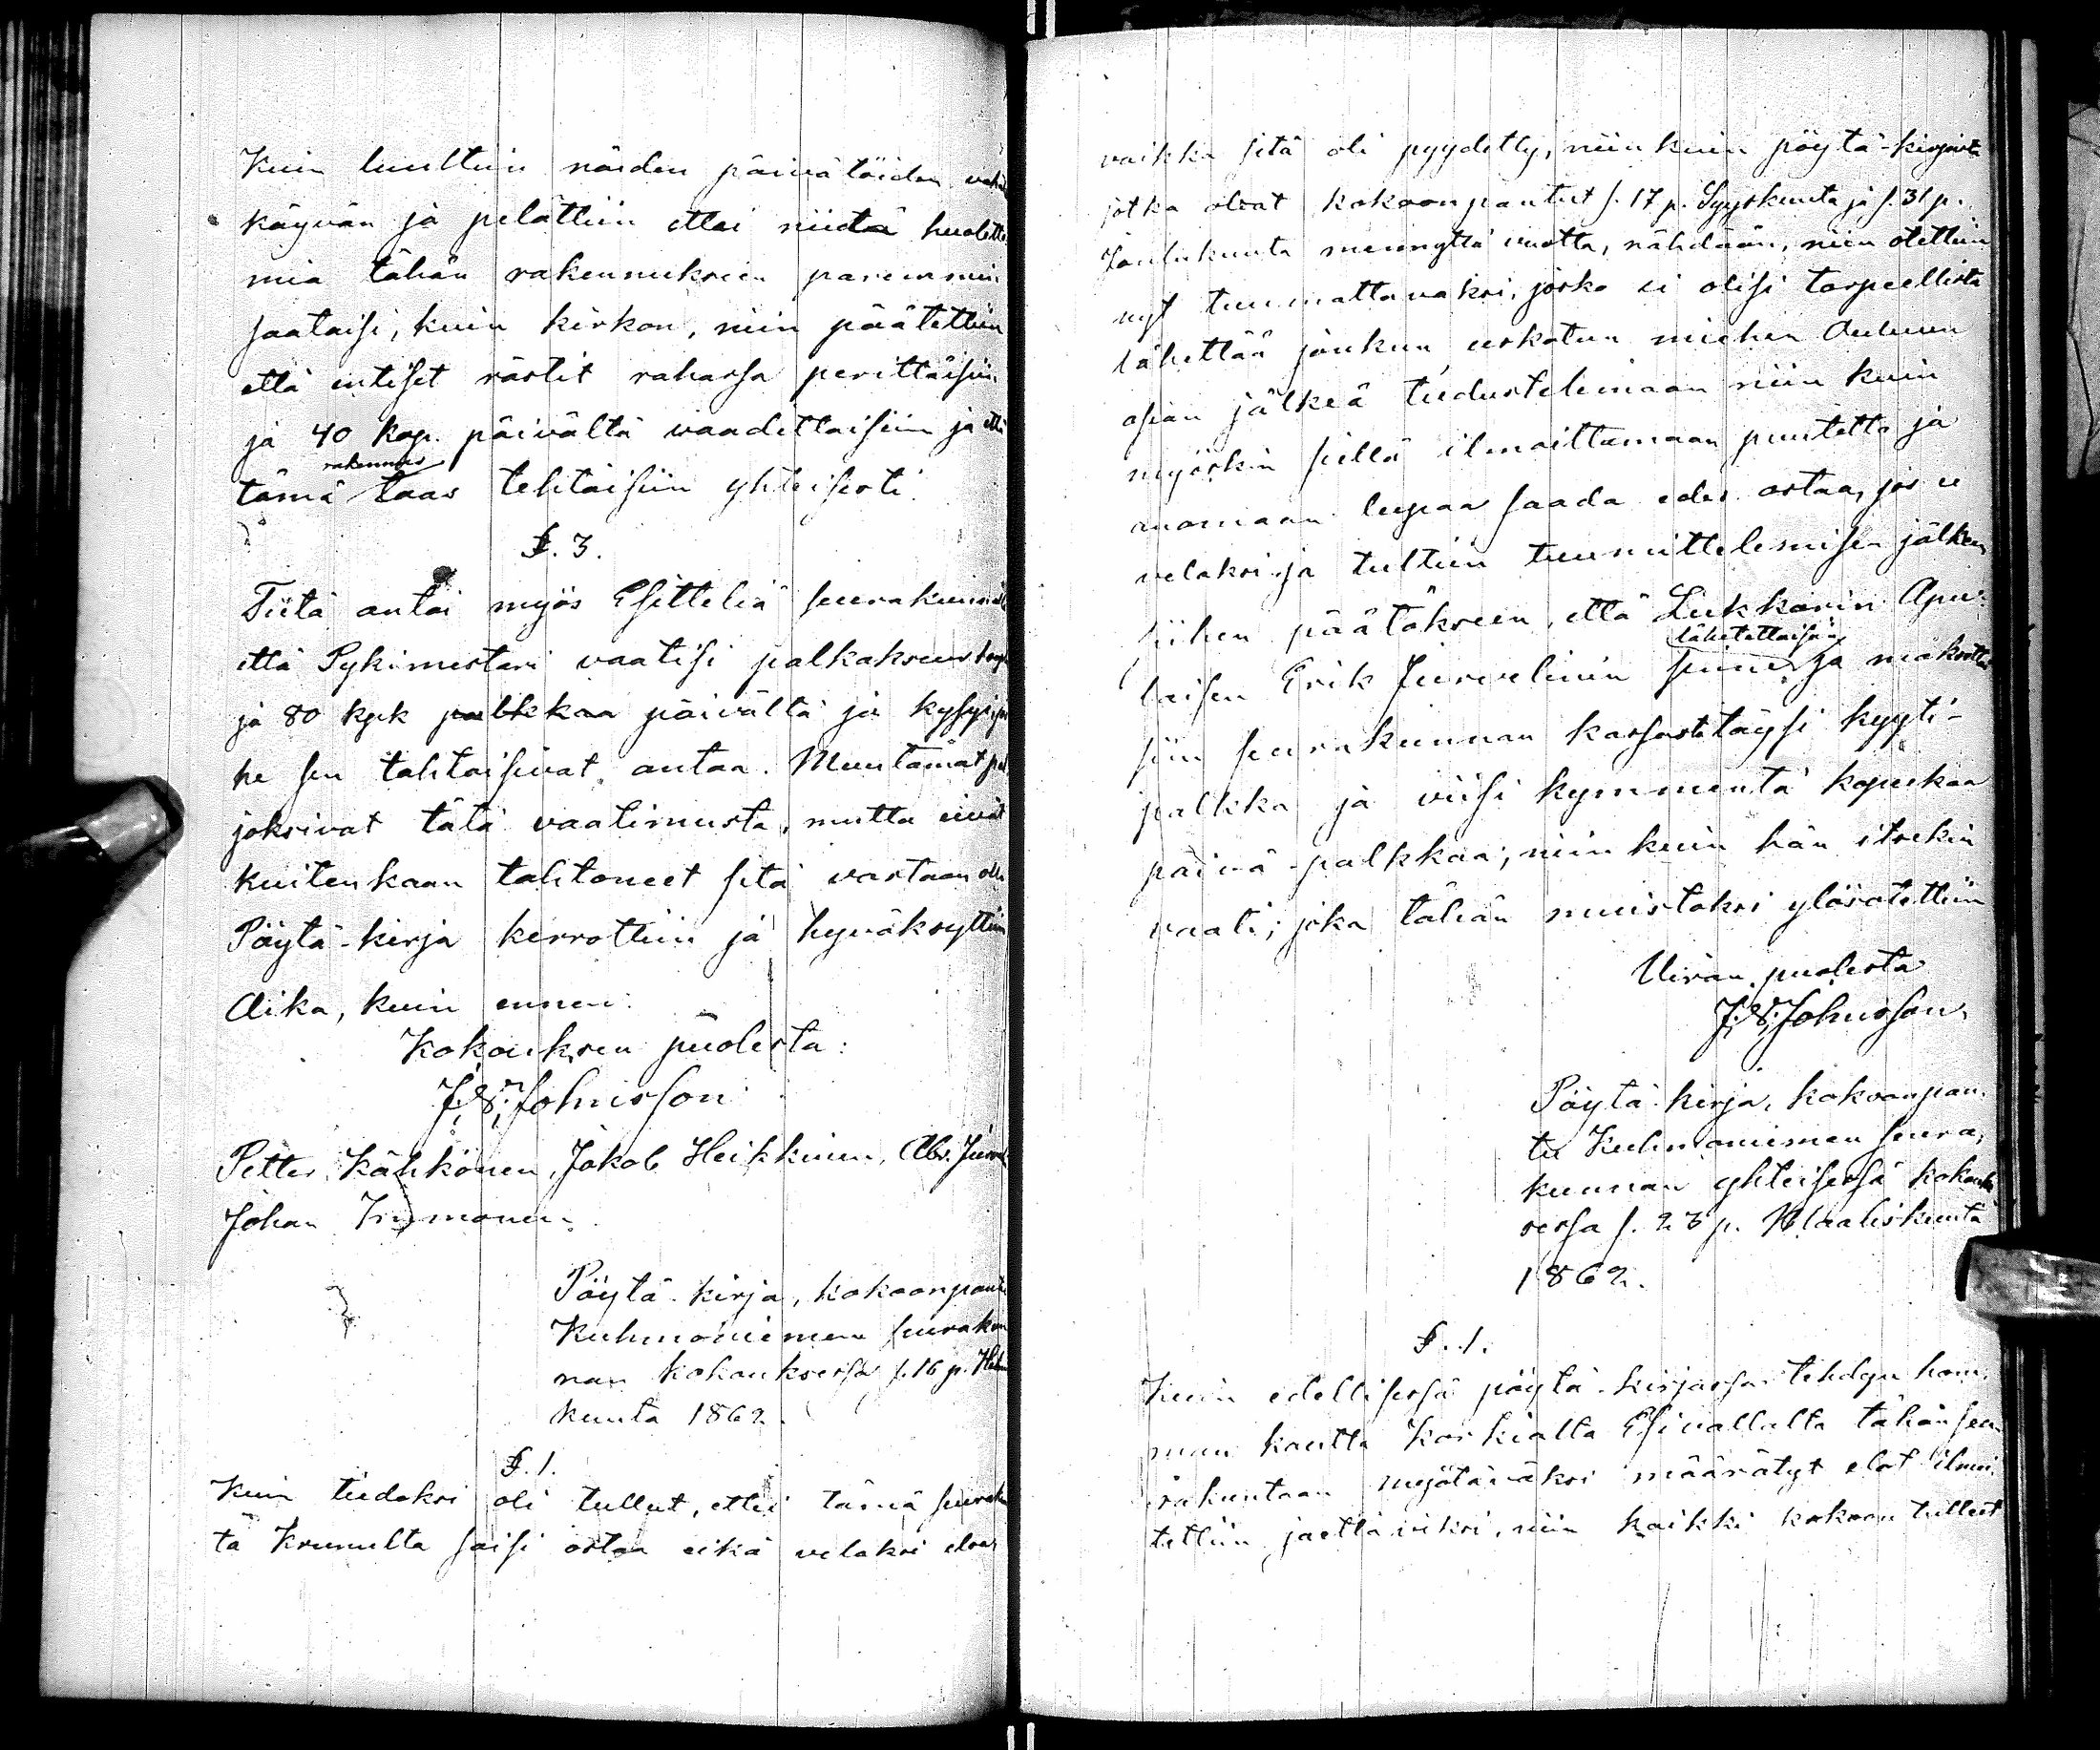 Kuin luultiin näiden päivätöiden
käyvän ja pelättiin ettei niidä
mia tähän rakennukseen paremmin
saataisi, kuin kirkon, niin päätettiin
että entiset rästit rahassa perittäisiin
ja 40 kop. päivältä vaadittaisiin ja
rakennus
tämä taas tehtäisiin yhteisesti.
§. 3.
Tiitä antoi myös Esitteliä
että Pykimestari vaatisi palkakseen
ja 80 kpk palkkaa päivältä ja
he sen tahtoisivat antaa. Muutamat
joksivat tätä vaatimusta, mutta eivät
kuitenkaan tahtoneet sitä vastaan
Pöytä-kirja kerrottiin ja hyväksyttiin
Aika, kuin ennen.
Kokouksen puolesta:
J. W. Johnsson
Petter Kähkönen, Jakob Heikkinen, Abr.
Johan Immonen.
Pöytä-kirja, kokoonpantu
Kuhmoniemen seurakun
nan kokouksessa s. 16 p.
kuuta 1862.
§. 1.
Kuin tiedoksi oli tullut, ettei tämä
tä Krunulta saisi ostaa eikä velaksi
vaikka sitä oli pyydetty, niin kuin pöytä-kirjoista
jotka olevat kokoonpantut s. 17 p. Syyskuuta ja s. 31 p.
Joulukuuta mennyttä vuotta, nähdään, niin otettiin
nyt tuumattavaksi, josko ei olisi tarpeellista
lähettää joukun uskotun miehen Ouluun
asian jälkeä tiedustelemaan niin kuin
myöskin siellä ilmoittamaan puutetta ja
anomaan lupaa saada edes ostaa, jos ei
velaksi ja tultiin tuumittelemisen jälkeen
siihen päätökseen, että Lukkarin Apu-
lähetettäisiin
laisen Erik Juvelinin sinne ja maksettai
siin seurakunnan kassasta täysi kyyti-
palkka ja viisi kymmentä kopeekaa
päivä-palkkaa; niin kuin hän itsekin
vaati; joka tähän muistoksi ylösotettiin
Viran puolesta
J. W. Johnsson.
Pöytä-kirja, kokoonpan-
tu Kuhmoniemen seura-
kunnan yhteisessä kokouk
sessa s. 23 p. Maaliskuuta
1862.
§. 1.
Kuin edellisessä pöytä-kirjassa tehdyn hom-
man kautta Korkialta Esivallalta tähän seu-
rakuntaan myötäväksi määrätyt elot ilmoi
tettiin jaettaviksi, niin kaikki kokoon tulleet